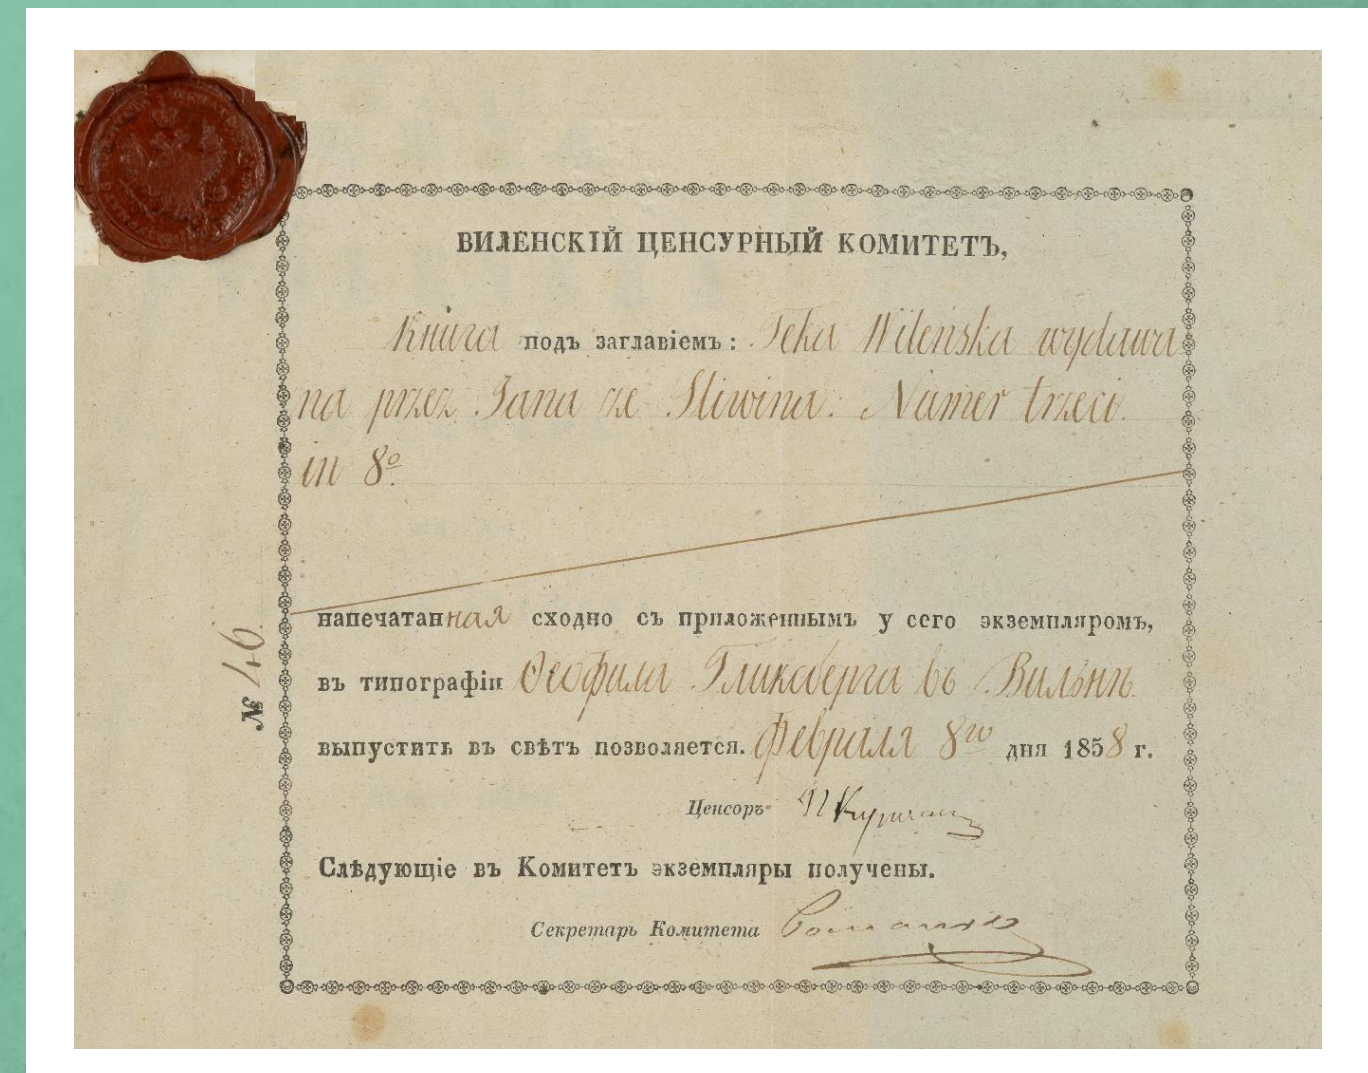 ВИЛЕНСКІЙ ЦЕНСУРНЫЙ КОМИТЕТЪ,
Книга подъ заглавіемъ: Teka Wileńska wydawa
na przez Jana ze Sliwina. Numer trzeci.
in 8º
напечатанная сходно съ приложеннымъ у сего экземпляромъ,
въ типографіи Ѳеофила Гликсберга въ Вильнѣ
выпустить въ свѣтъ позволяется. Февраля 8го дня 1858 г.
Ценсоръ
Слѣдующіе въ Комитетъ экземпляры получены.
Секретарь Комитета
№ 46.